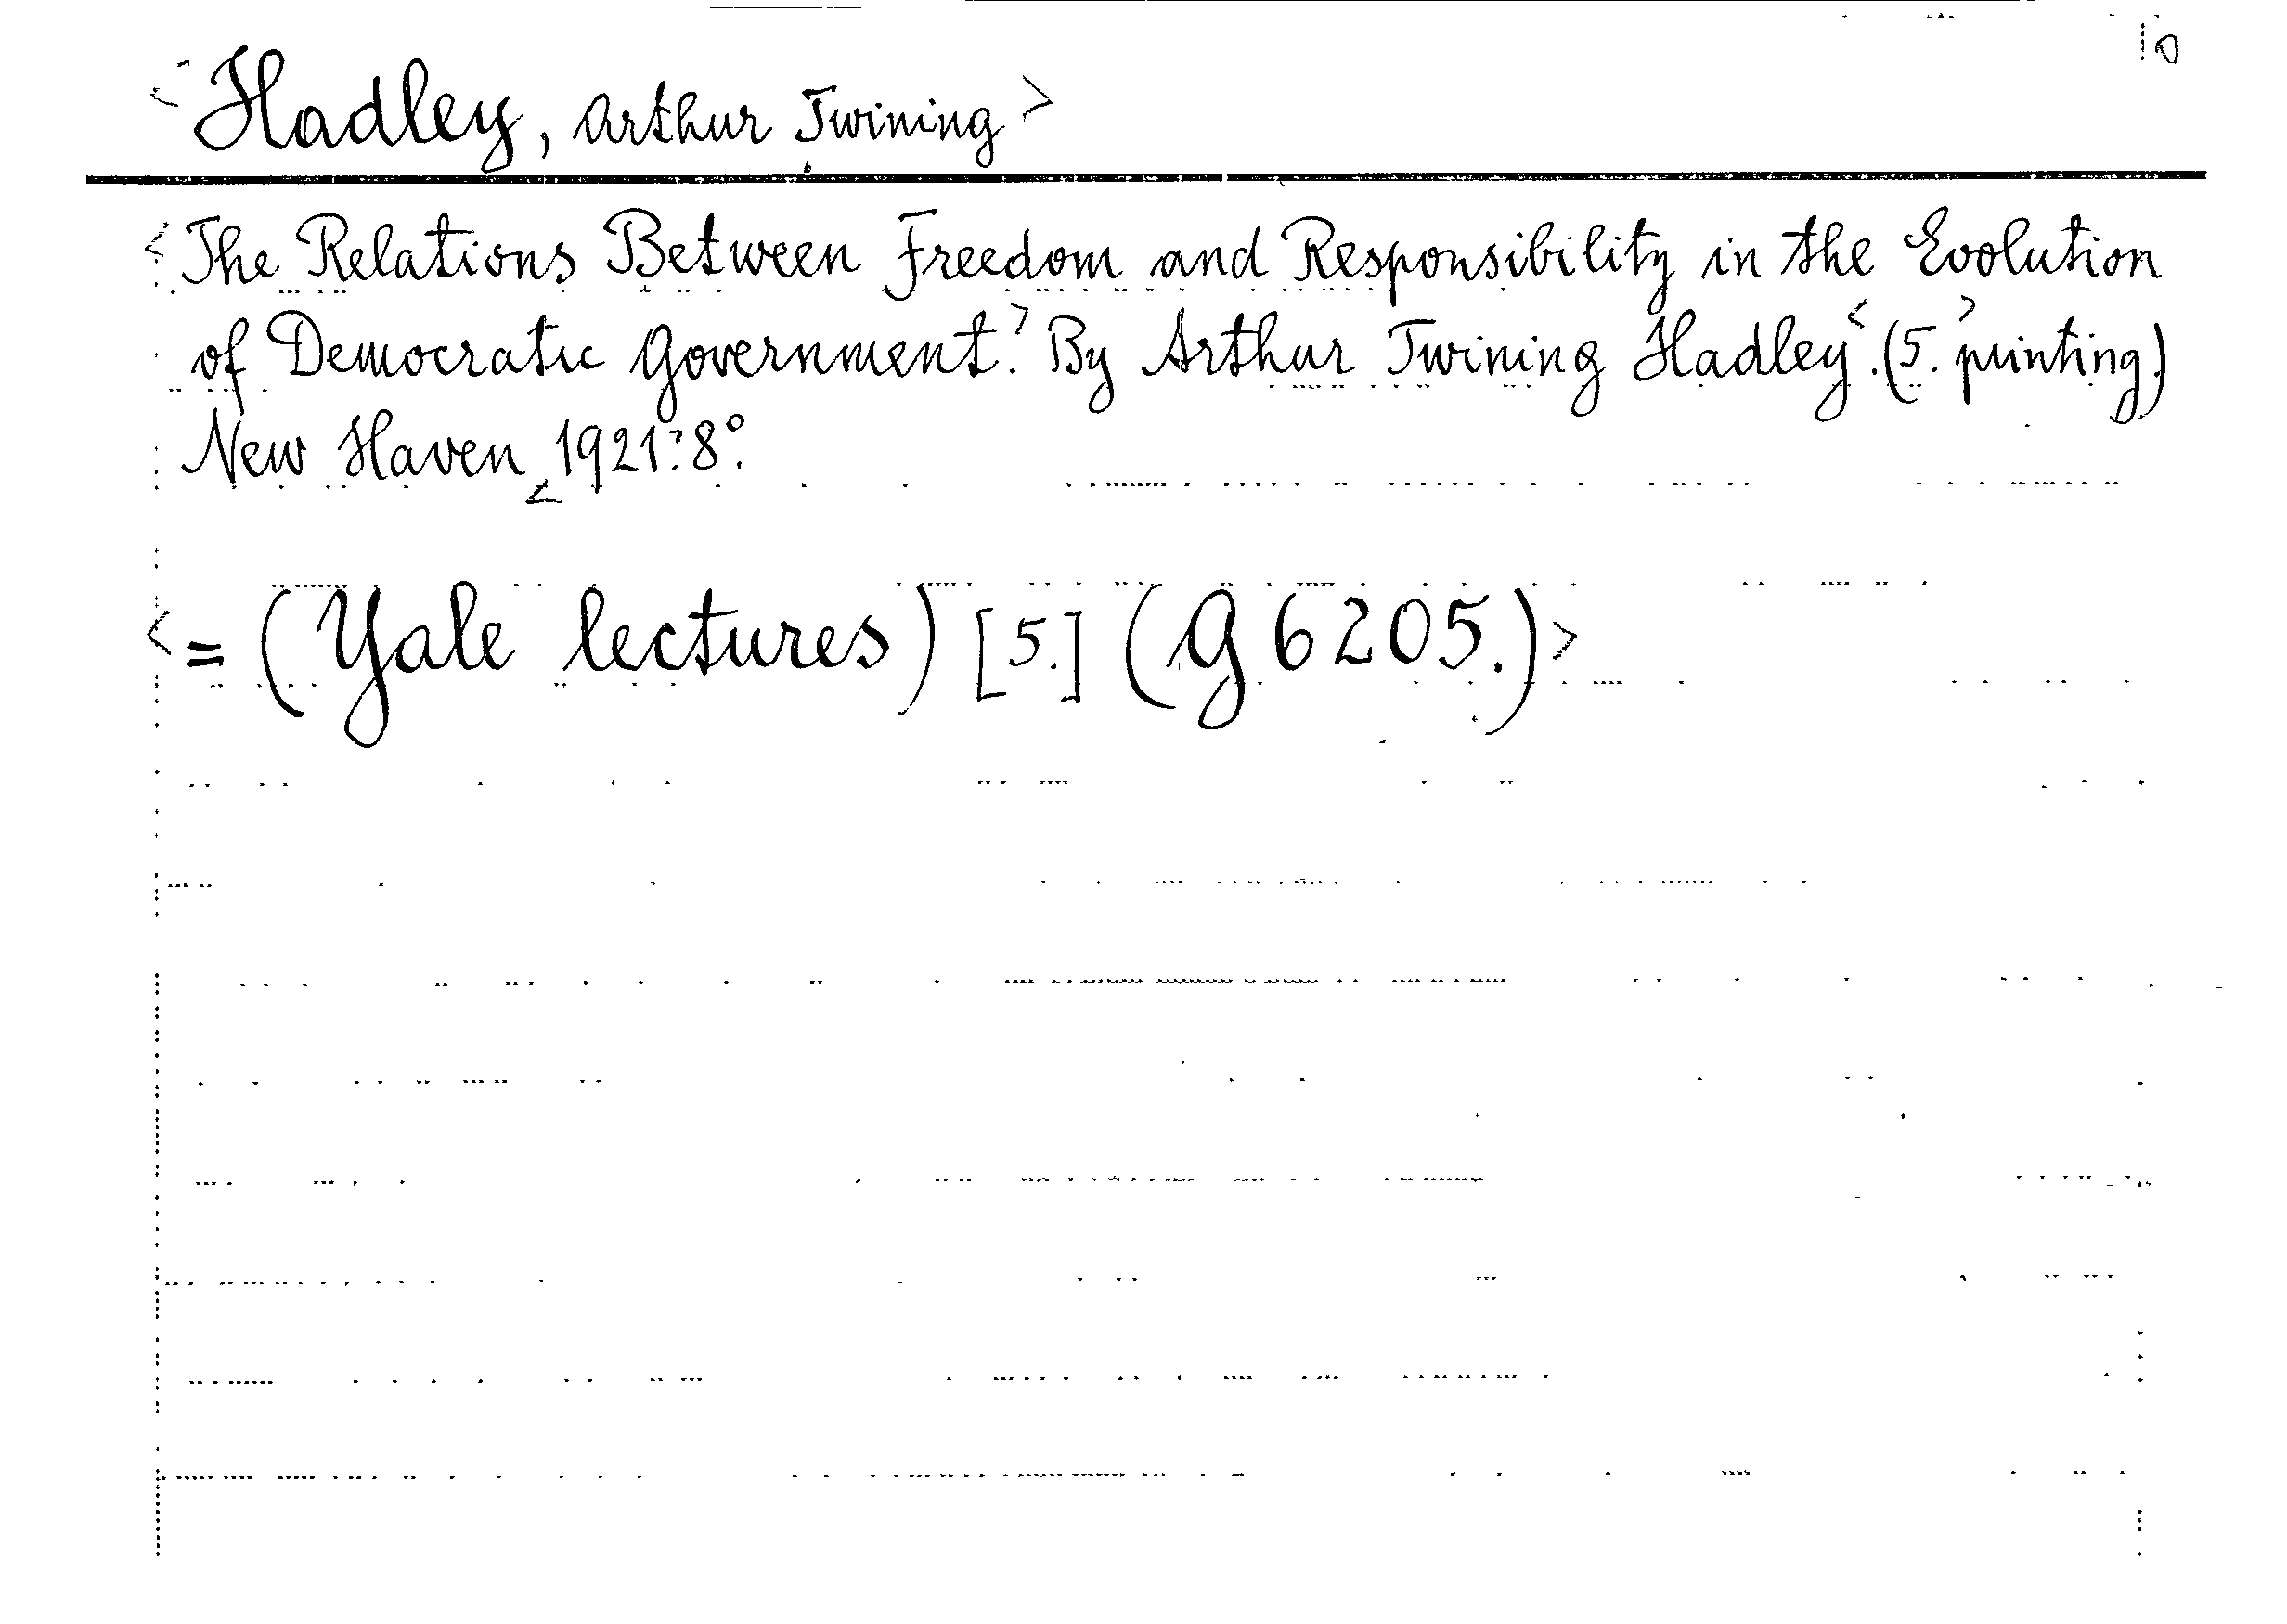 <Hadley, Arthur Twining>
<The Relations Between Freedom and Responsibility in the Evolution
of Democratic Government.> By Arthur Twining Hadley<. (5.> printing.)
New Haven <1921>. 8°.
<= (Yale lectures) [5.] (G 6205.)>